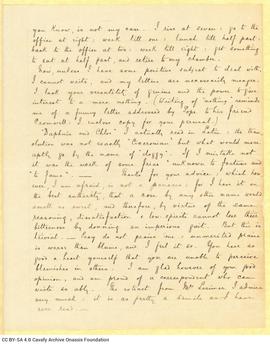 you know, is not my case. I rise at seven: go to the
office at eight: work till one: lunch till half past:
back to the office at two: work till eight: get something
to eat at half past, and retire to my chamber.
Now, unless I have some positive subject to deal with,
I cannot write; and my letters are necessarily meagre.
I lack your versatility of genius and the power to give
interest to a mere nothing. (Writing of "nothing" reminds
me of a funny letter addressed by Pope to his friend
Cromwell: I enclose copy for your perusal.)
"Daphnis and Chloe" I actually read in Latin: the trans-
lation was not exactly "Ciceronian", but what would more
aptly go by the name of "doggy". If I mistake not
it was the work of some priest "unknown to fortune and
to fame". — Thanks for your advice; which how-
ever, I am afraid, is not a panacea; for I have it on
the best authority that a rose by any other name would
smell as sweet; and therefore, by virtue of the same
reasoning, dissatisfaction & low spirits cannot lose their
bitterness by donning an imperious garb. But this is
trivial. — Pray do not praise me: unmerited praise
is worse than blame, and I feel it so. You have so
good a heart yourself that you are unable to perceive
blemishes in others. I am glad however of your good
opinion; and am proud of a correspondent who can
write so ably. The extract from Mr. I admire
very much: it is as pretty a simile as I have
ever read. —
CC BY-SA 4.0 Cavafy Archive Onassis Foundation